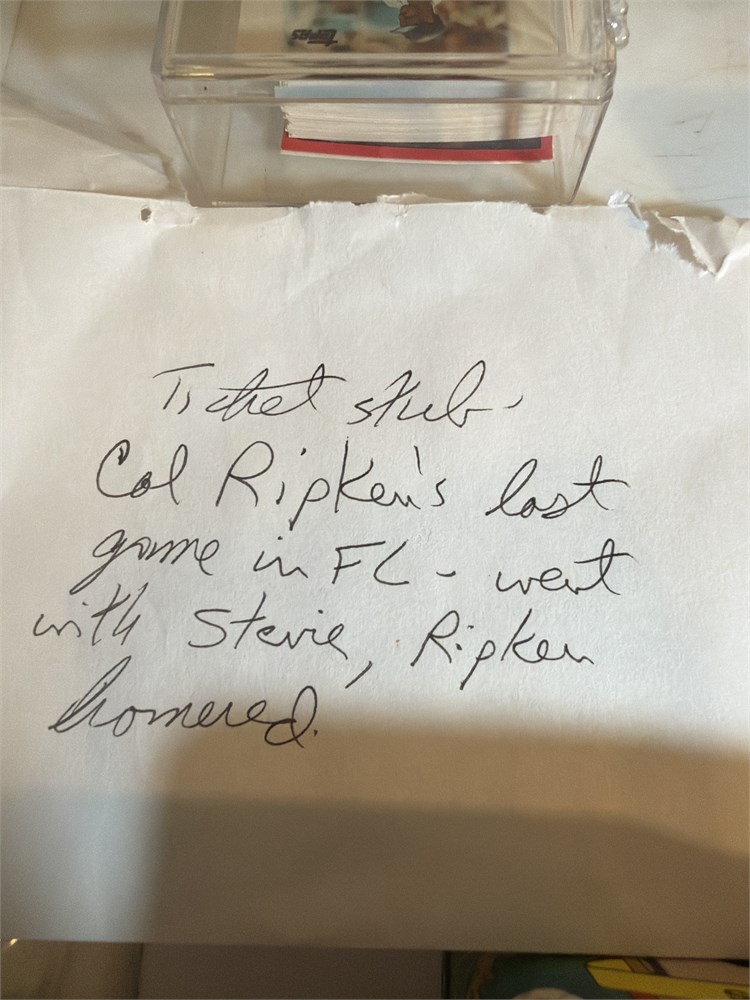 Topps
Ticket stub-
Cal Ripken's last
game in FL - went
with Stevie, Ripken
homered.